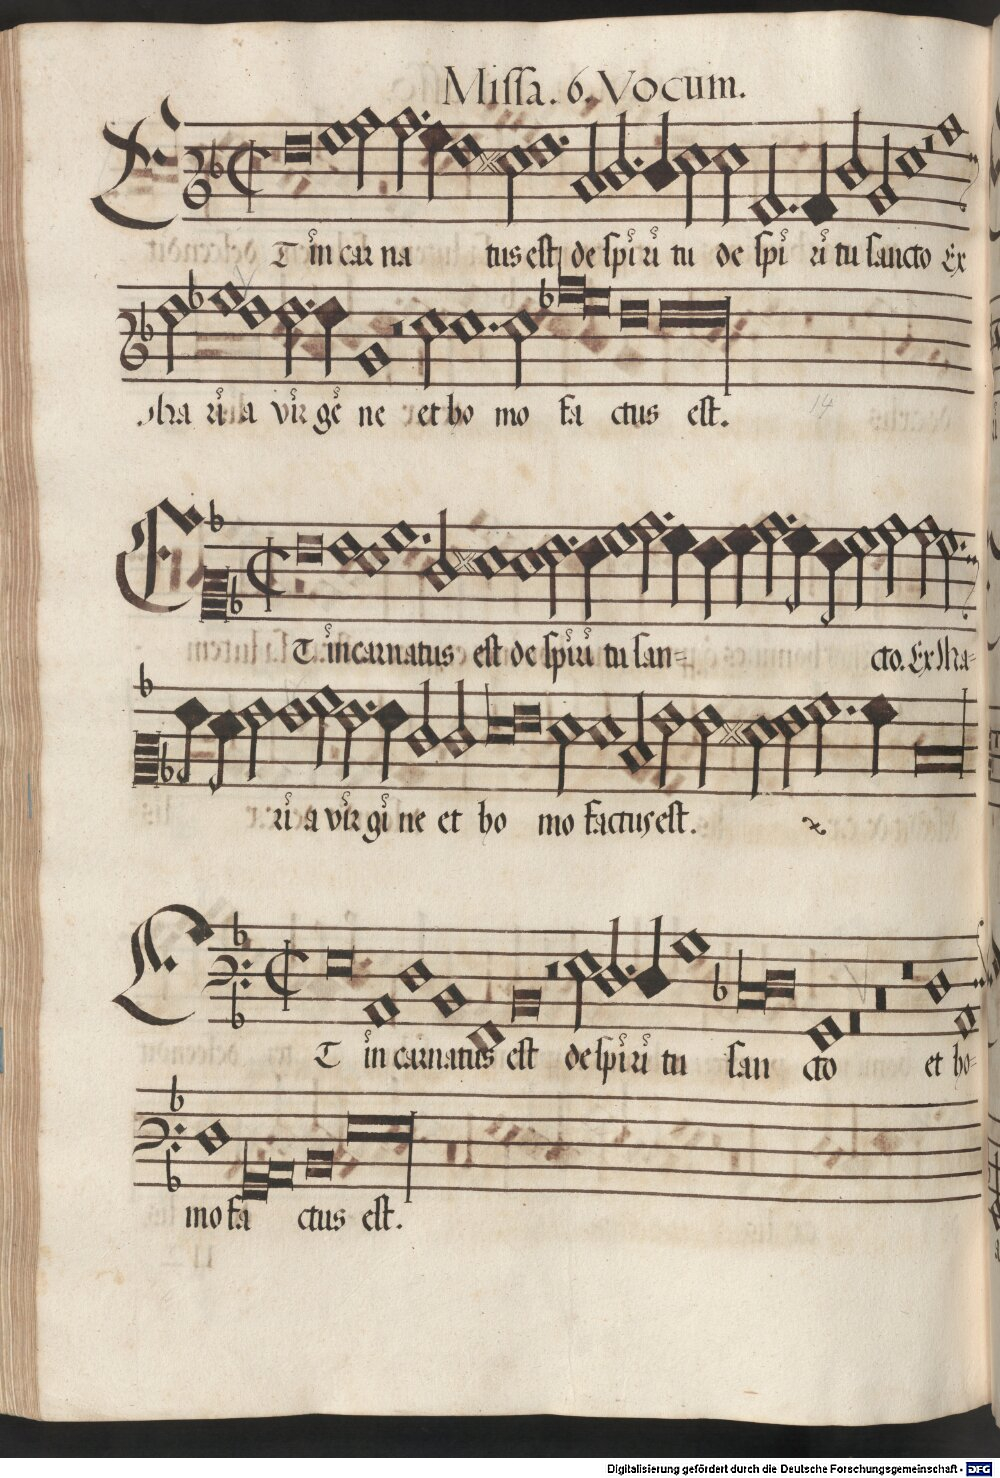 Missa. 6. Vocum.
ET in car na tus est de spi ri tu de spi ri tu sancto Ex
Ma ri a vir gi ne et ho mo fa ctus est.
14
ET incarnatus est de spiri tu san= cto. Ex Ma=
ri a vir gi ne et ho mo factus est.
ET in carnatus est de spi ri tu san cto et ho=
mo fa ctus est.
Digitalisierung gefördert durch die Deutsche Forschungsgemeinschaft - DFG